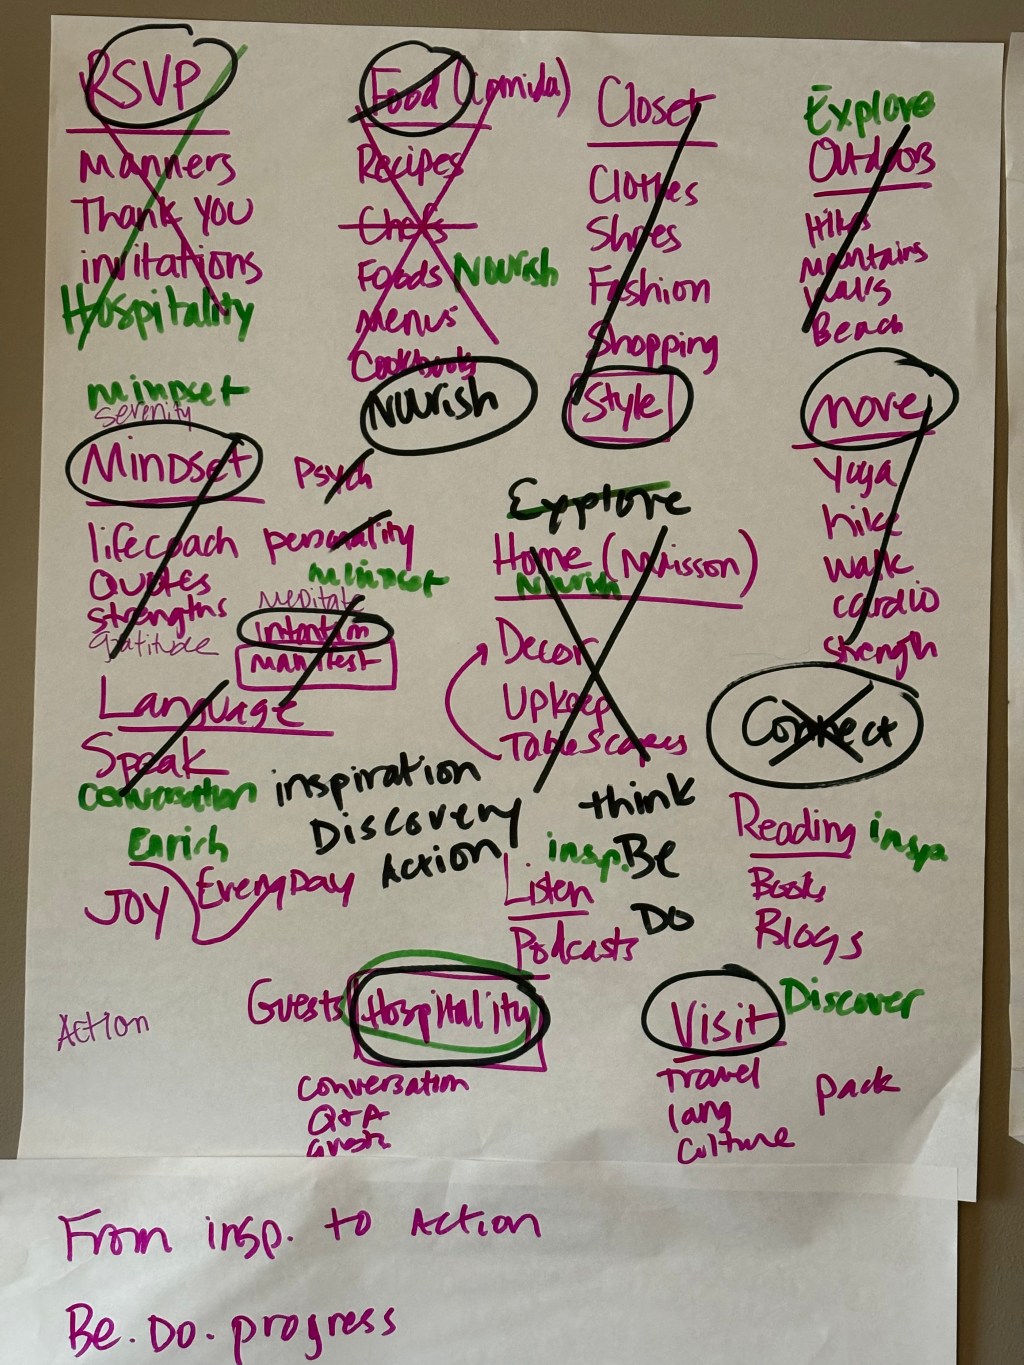 RSVP
Manners
Thank You
invitations
Hospitality
Food (Comida)
Recipes
Chefs
Foods Nourish
Menus
Cookbooks
Nourish
Closet
Clothes
Shoes
Fashion
Shopping
Style
Explore
Outdoors
Hikes
Mountains
Walks
Beach
Mindset
Serenity
Mindset
lifecoach
Quotes
strengths
gratitude
Psych
personality
Mindset
Meditate
intention
manifest
Explore
Home (Maisson)
Nourish
Decor
Upkeep
TableScapes
move
Yoga
hike
walk
cardio
strength
Connect
Language
Speak
Conversation
Enrich
JOY EveryDay
inspiration
Discovery
Action
think
Be
DO
insp.
Listen
Podcasts
Reading inspa
Books
Blogs
Action
Guests Hospitality
Conversation
Q+A
Guests
Visit Discover
Travel
lang
Culture
pack
From insp. to Action
Be. Do. progress